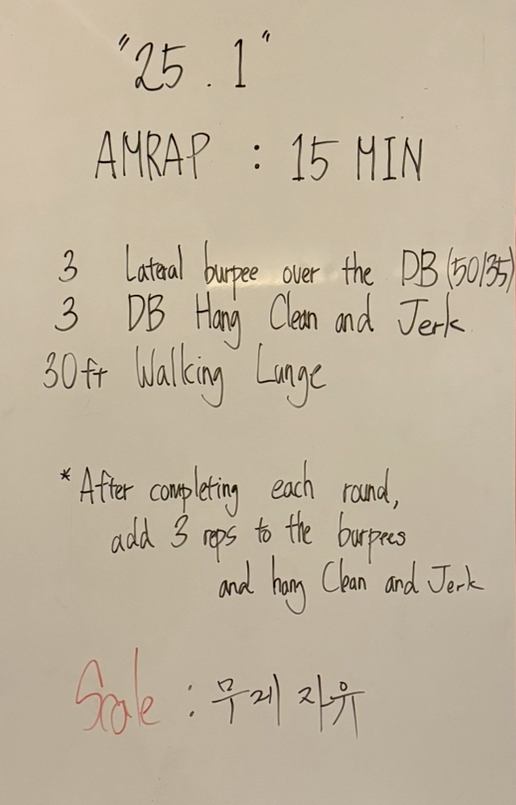 "25.1"
AMRAP : 15 MIN
3 Lateral burpee over the DB (50/35)
3 DB Hang Clean and Jerk
30ft Walking Lunge
* After completing each round,
add 3 reps to the burpees
and hang Clean and Jerk
Scale : 무게 자유